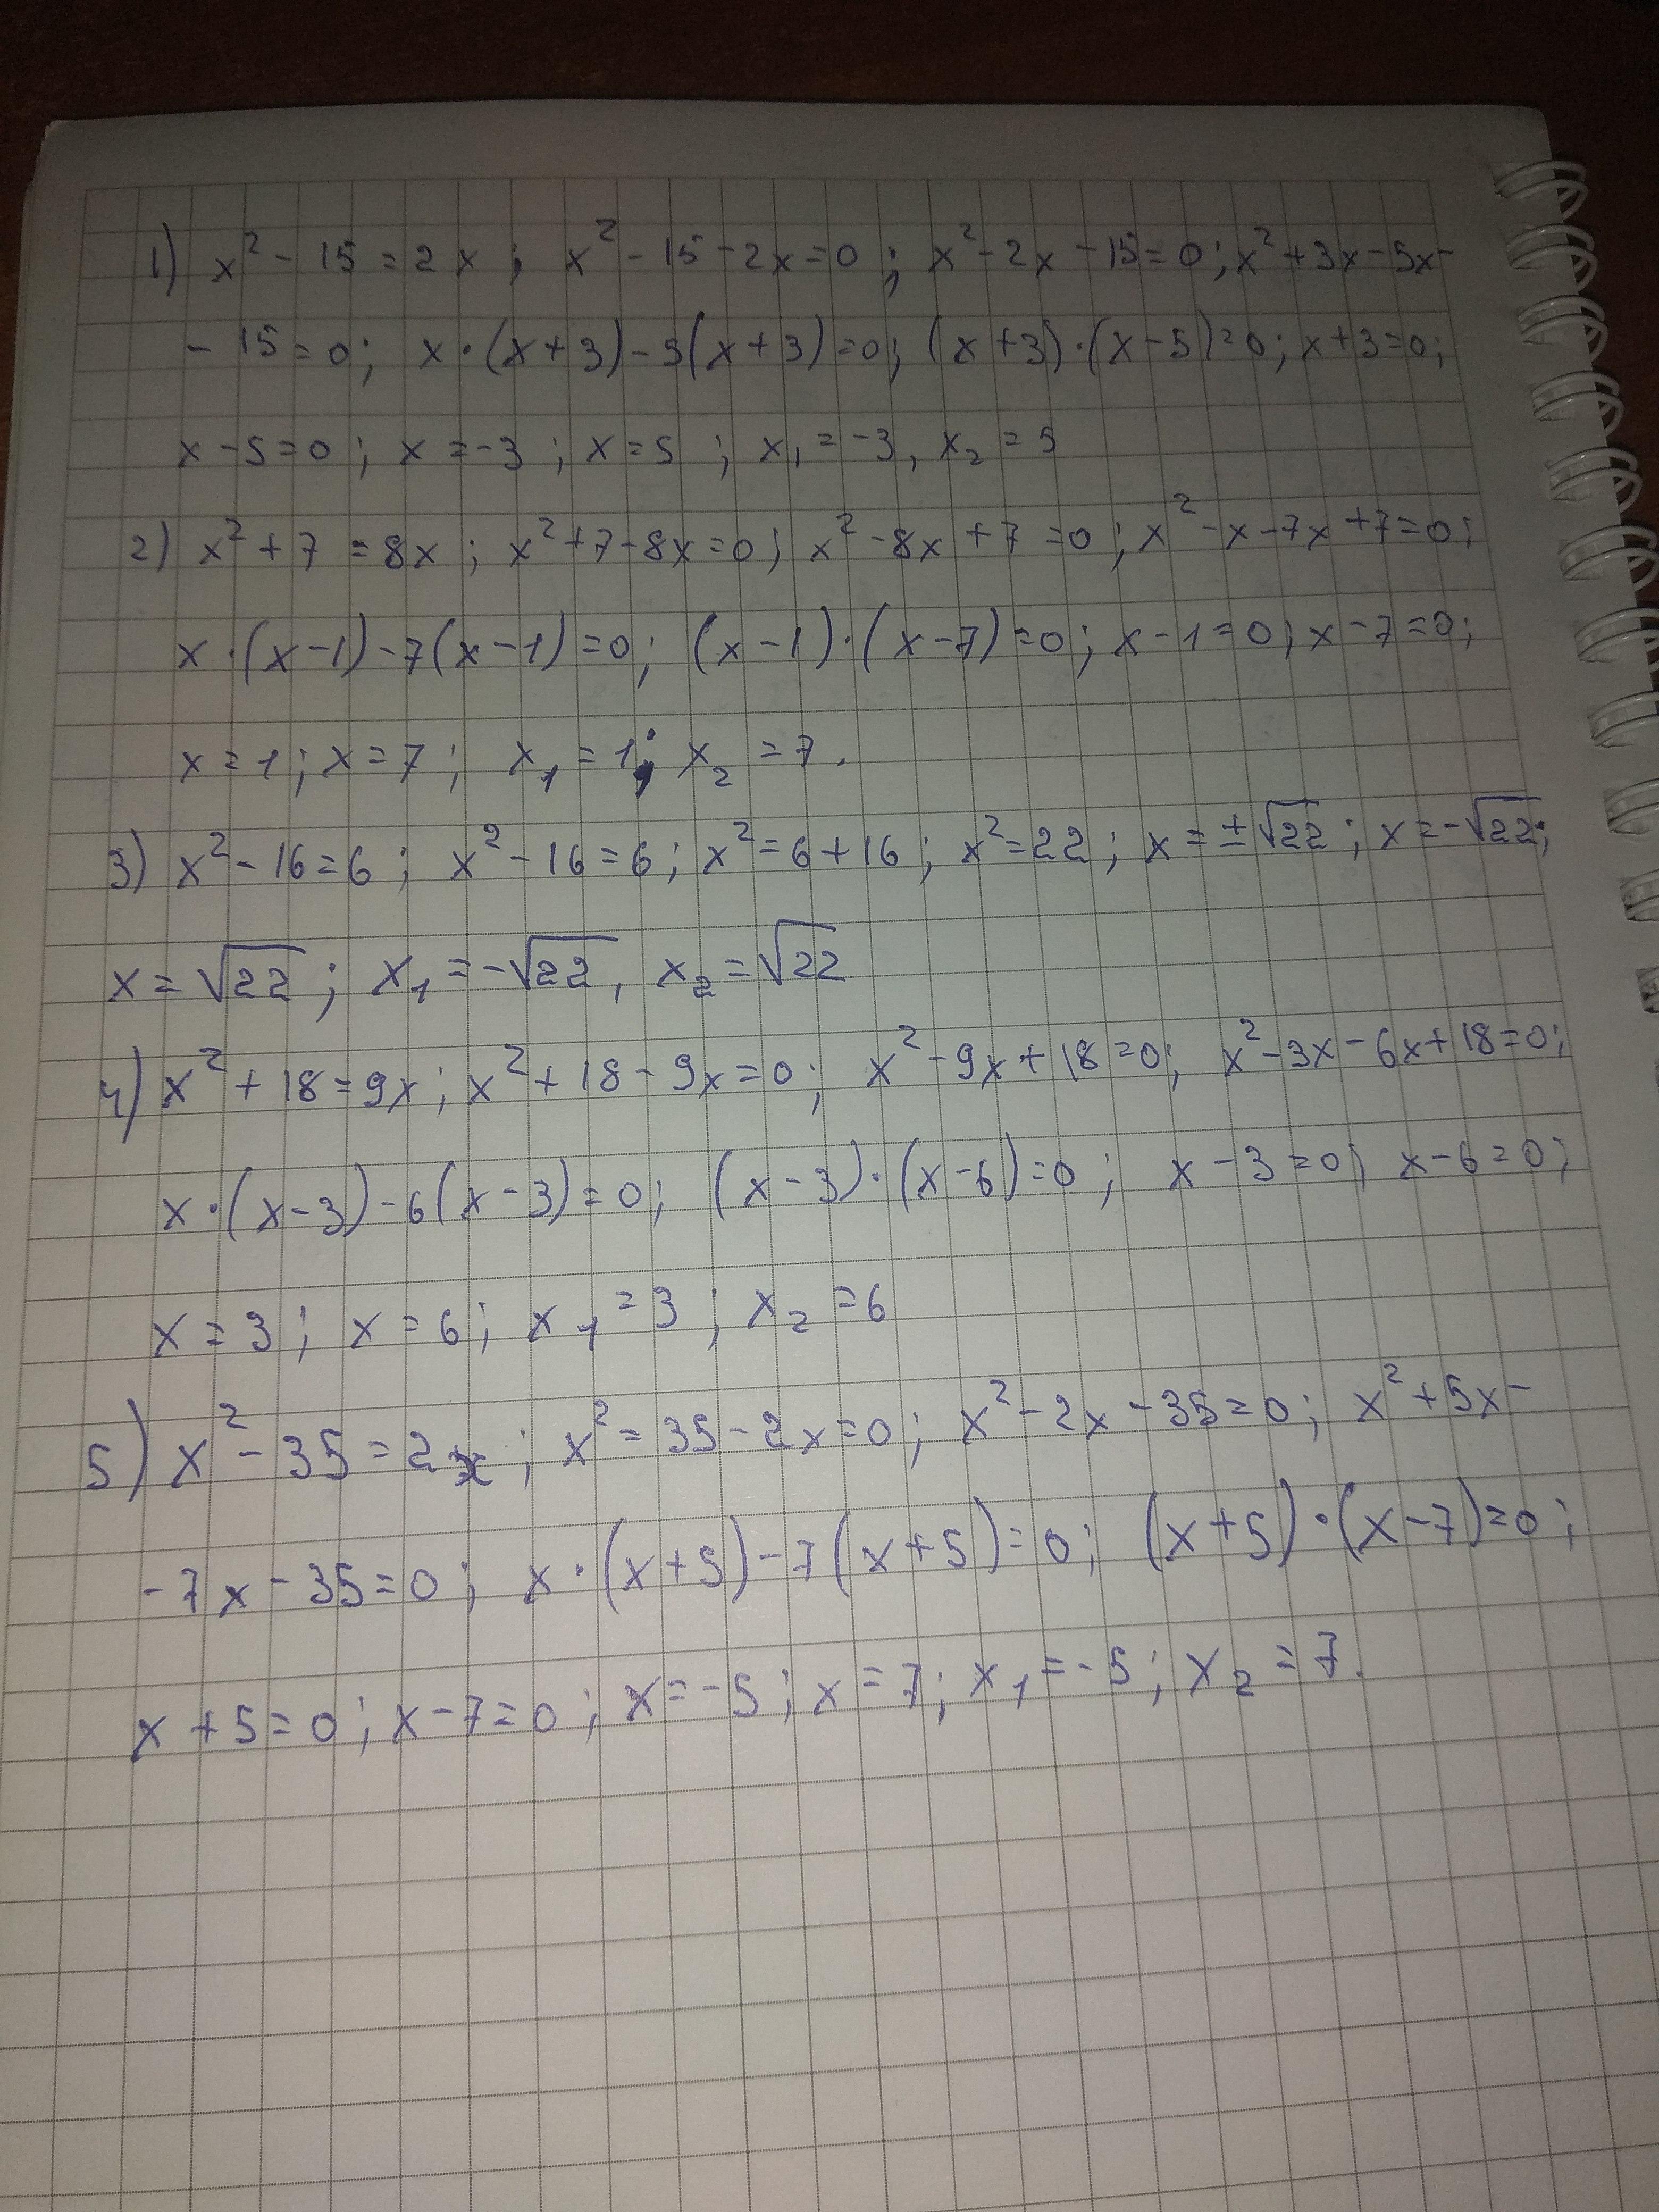 1) x² - 15 = 2x ; x² - 15 - 2x = 0 ; x² - 2x - 15 = 0 ; x² + 3x - 5x -
- 15 = 0 ; x · (x + 3) - 5(x + 3) = 0 ; (x + 3) · (x - 5) = 0 ; x + 3 = 0 ;
x - 5 = 0 ; x = -3 ; x = 5 ; x₁ = -3 , x₂ = 5
2) x² + 7 = 8x ; x² + 7 - 8x = 0 ; x² - 8x + 7 = 0 ; x² - x - 7x + 7 = 0 ;
x · (x - 1) - 7(x - 1) = 0 ; (x - 1) · (x - 7) = 0 ; x - 1 = 0 ; x - 7 = 0 ;
x = 1 ; x = 7 ; x₁ = 1 ; x₂ = 7 .
3) x² - 16 = 6 ; x² - 16 = 6 ; x² = 6 + 16 ; x² = 22 ; x = ±√22 ; x = -√22 ;
x = √22 ; x₁ = -√22 , x₂ = √22
4) x² + 18 = 9x ; x² + 18 - 9x = 0 ; x² - 9x + 18 = 0 ; x² - 3x - 6x + 18 = 0 ;
x · (x - 3) - 6(x - 3) = 0 ; (x - 3) · (x - 6) = 0 ; x - 3 = 0 ; x - 6 = 0 ;
x = 3 ; x = 6 ; x₁ = 3 ; x₂ = 6
5) x² - 35 = 2x ; x² = 35 - 2x = 0 ; x² - 2x - 35 = 0 ; x² + 5x -
- 7x - 35 = 0 ; x · (x + 5) - 7(x + 5) = 0 ; (x + 5) · (x - 7) = 0 ;
x + 5 = 0 ; x - 7 = 0 ; x = -5 ; x = 7 ; x₁ = -5 ; x₂ = 7 .